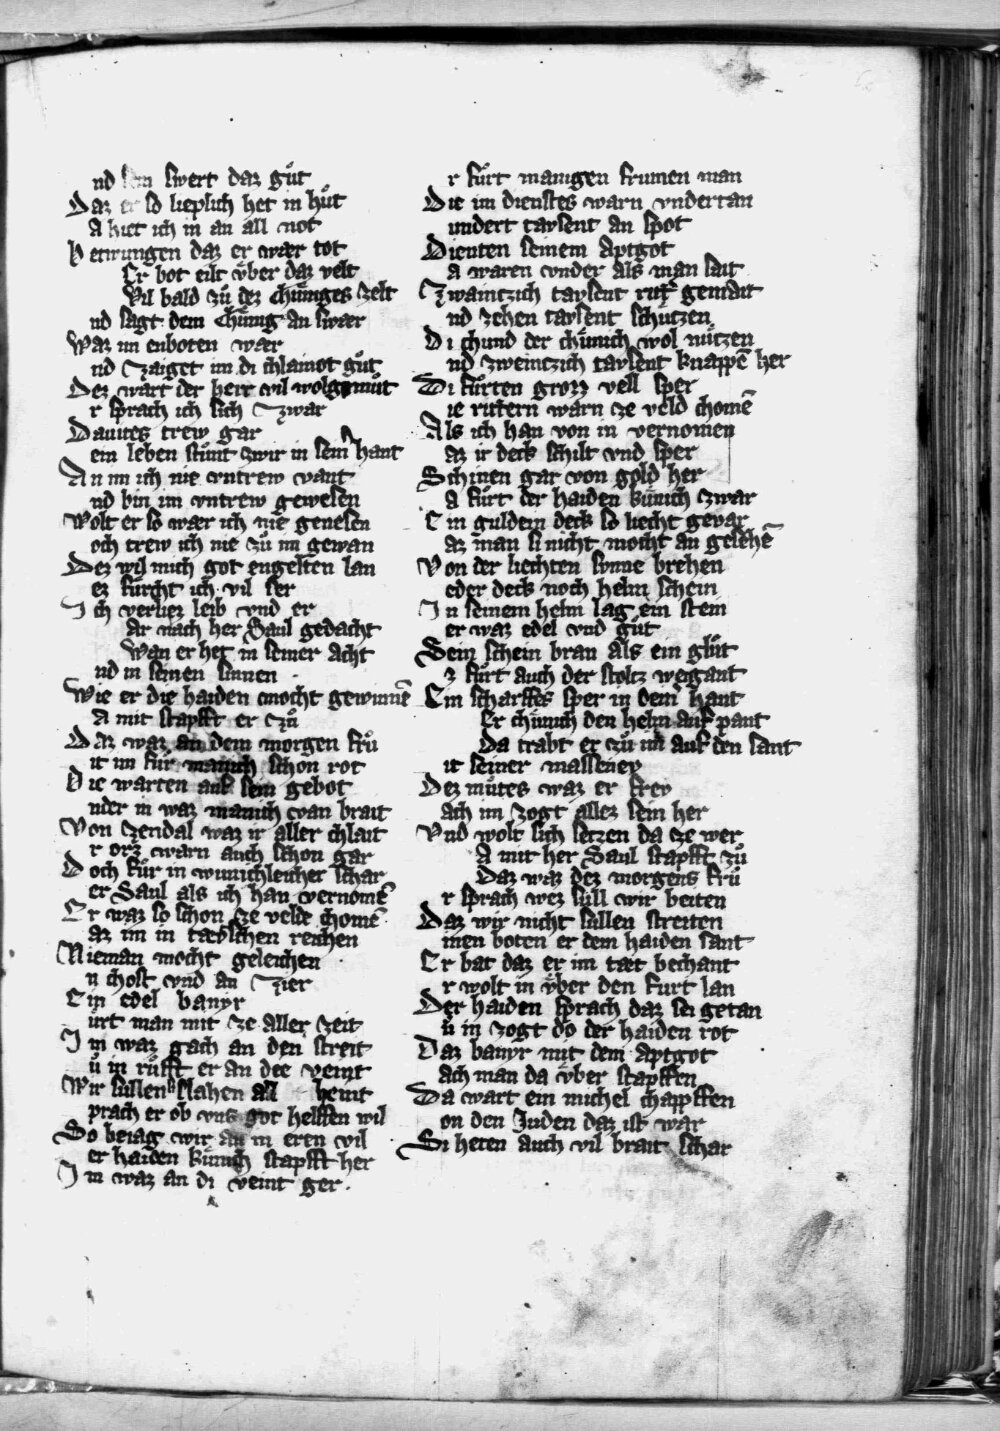 nd sein swert daz guͦt
Daz er so lieplich het in huͦt
A hiet ich in an all not
Petwungen daz er wær tot
Er bot eilt vͤber daz velt
Vil bald zuͦ dez chuͤniges zelt
nd sagt dem Chuͤnig an swær
Waz im enboten wær
nd Zaiget im di chlainot guͦt
Dez wart der herr vil wolgemuͦt
r sprach ich sich Zwar
Dauites trew gar
ein leben stuͤnt zwir in sein hant
An im ich nie vntrew vant
nd bin im vntrew gewesen
Wolt er so wær ich nie genesen
och trew ich nie zuͦ im gewan
Dez wil mich got engelten lan
ez fuͤrcht ich vil ser
Ich verliez leib vnd er
ar nach her Saul gedacht
Wan er het in seiner acht
nd in seinen sinnen
Wie er die haiden mocht gewinnē
A mit stapfft er Zuͦ
Daz waz an dem morgen fruͦ
it im fuͤr manich schon rot
Die warten auf sein gebot
nder in waz manich van brait
Von Zendal waz ir aller chlait
r orz warn auch schon gar
Doch fuͤr in wunichleicher schar
er Saul als ich han vernomē
Er waz so schon ze velde chomē
az im in tæwschen reichen
Nieman mocht geleichen
n chost vnd an Zier
Ein edel banyr
uͤrt man mit ze aller zeit
Im waz gach an den streit
uͦ in ruͤfft er an dee veint
Wir sullens slahen all heint
prach er ob vns got helffen wil
So beiag wir an in eren vil
er haiden kuͤnich stapfft her
Im waz an di veint ger
r fuͤrt manigen frumen man
Die im dienstes warn vndertan
undert tavsent an spot
Dienten seinem Aptgot
a waren vnder als man sait
Zwaintzich tavsent rit gemait
nd zehen tavsent schutzen
Di chund der chuͤnich wol nuͤtzen
nd zweintzich tavsent knappē her
Di fuͤrten groz vell sper
ie rittern warn ze veld chomē
Als ich han von in vernomen
az ir deck schilt vnd sper
Schinen gar von gold her
a fuͤrt der haiden kuͤnich zwar
Ein guldein deck so liecht gevar
az man si nicht mocht an gesehē
Von der liechten sunne brehen
eder deck noch helm schein
In seinem helm lag ein stein
er waz edel vnd guͦt
Dem schein bran als ein gluͦt
z fuͤrt auch der stoltz weigant
Ein scharffes sper in dem hant
Er chuͤnich den helm auf pant
Da trabt er zuͦ im auf den sant
it seiner masseney
Dez muͦtes waz er frey
ach im zogt allez sein her
Vnd wolt sich setzen da ze wer
A mit her Saul stapfft zuͦ
Daz waz dez morgens fruͦ
r sprach wez suͤll wir beiten
Daz wir nicht sullen streiten
inen boten er dem haiden sant
Er bat daz er im tæt bechant
r wolt in vͤber den furt lan
Der haiden sprach daz sei getan
uͦ in zogt do der haiden rot
Daz banyr mit dem aptgot
ach man da vͤber stapffen
Da wart ein michel chapffen
on den Juden daz ist war
Si heten auch vil brait schar